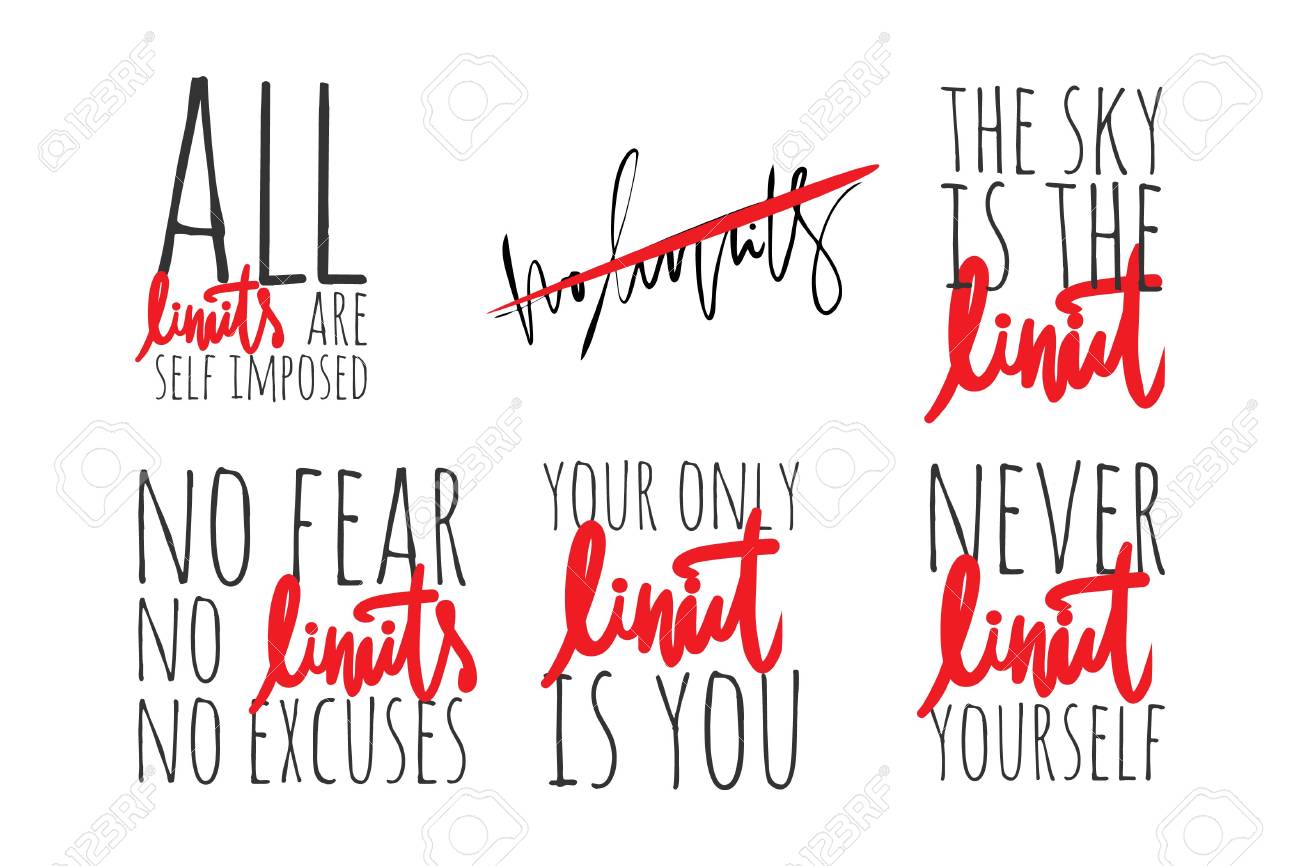 ALL
limits ARE
SELF IMPOSED
no limits
THE SKY
IS THE
limit
NO FEAR
NO limits
NO EXCUSES
YOUR ONLY
limit
IS YOU
NEVER
limit
YOURSELF
123RF
123RF
123RF
123RF
123RF
123RF
123RF
123RF
123RF